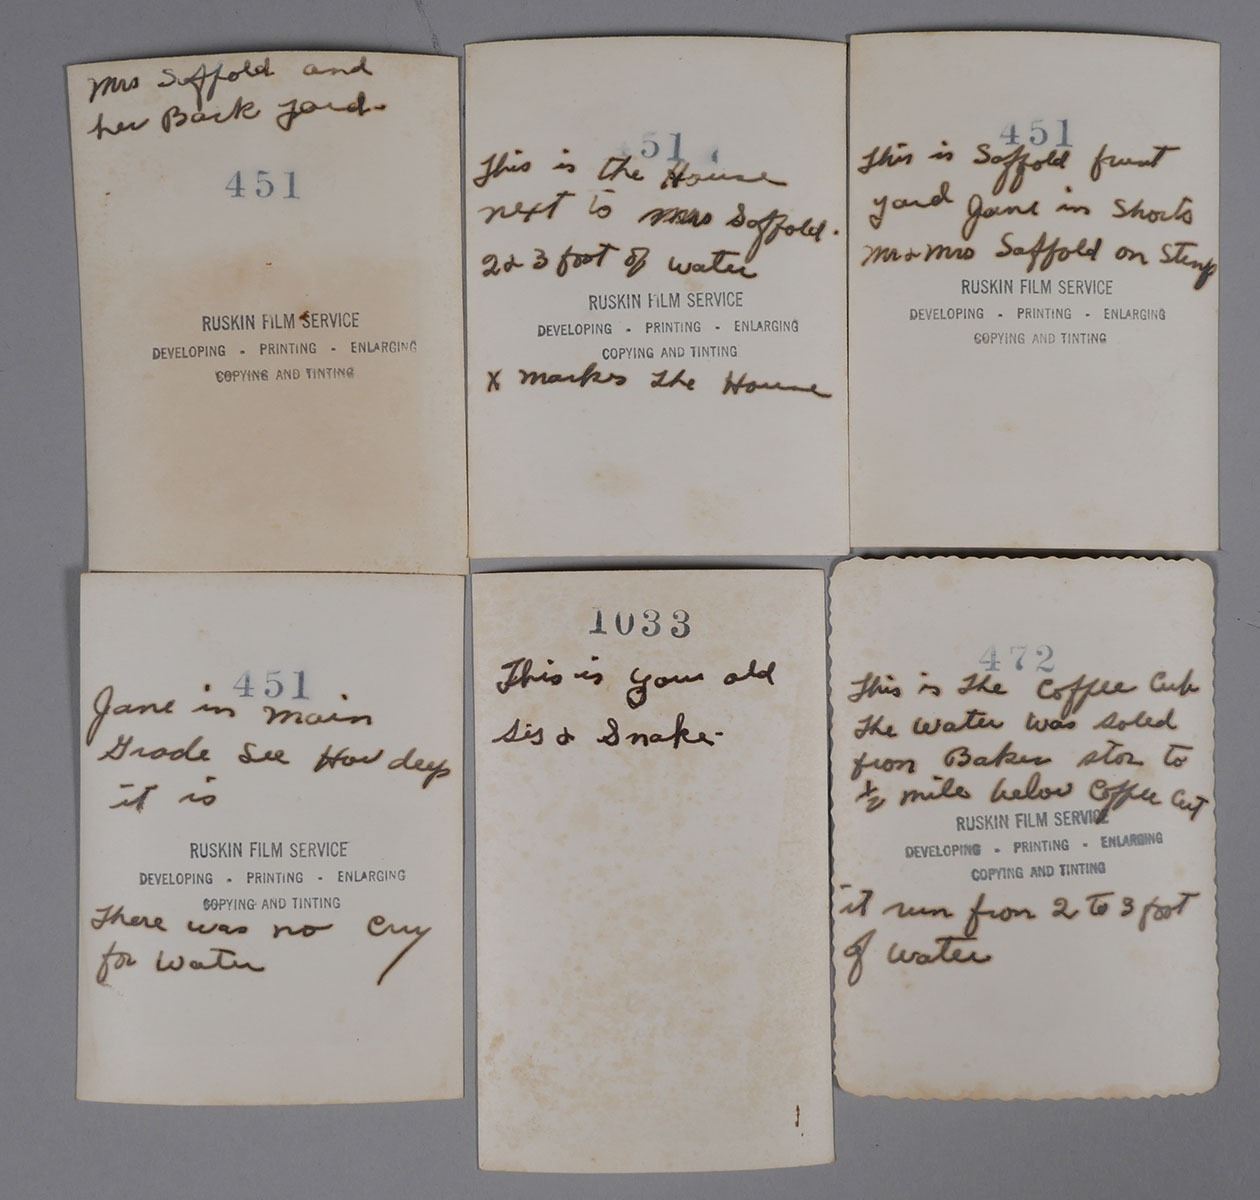 Mrs Saffold and
her Back yard.
451
RUSKIN FILM SERVICE
DEVELOPING - PRINTING - ENLARGING
COPYING AND TINTING
451
This is the House
next to Mrs Saffold.
2 & 3 foot of water
RUSKIN FILM SERVICE
DEVELOPING - PRINTING - ENLARGING
COPYING AND TINTING
X markes the House
451
This is Saffold frunt
yard Jane in Shorts
Mr & Mrs Saffold on Steps
RUSKIN FILM SERVICE
DEVELOPING - PRINTING - ENLARGING
COPYING AND TINTING
451
Jane in main
Grade See How deep
it is
RUSKIN FILM SERVICE
DEVELOPING - PRINTING - ENLARGING
COPYING AND TINTING
There was no Cry
for Water
1033
This is your old
Sis & Snake
472
This is the Coffee Cup
The Water was soled
from Baker stor to
1/2 mile below Coffee Cup
RUSKIN FILM SERVICE
DEVELOPING - PRINTING - ENLARGING
COPYING AND TINTING
it run from 2 to 3 foot
of water